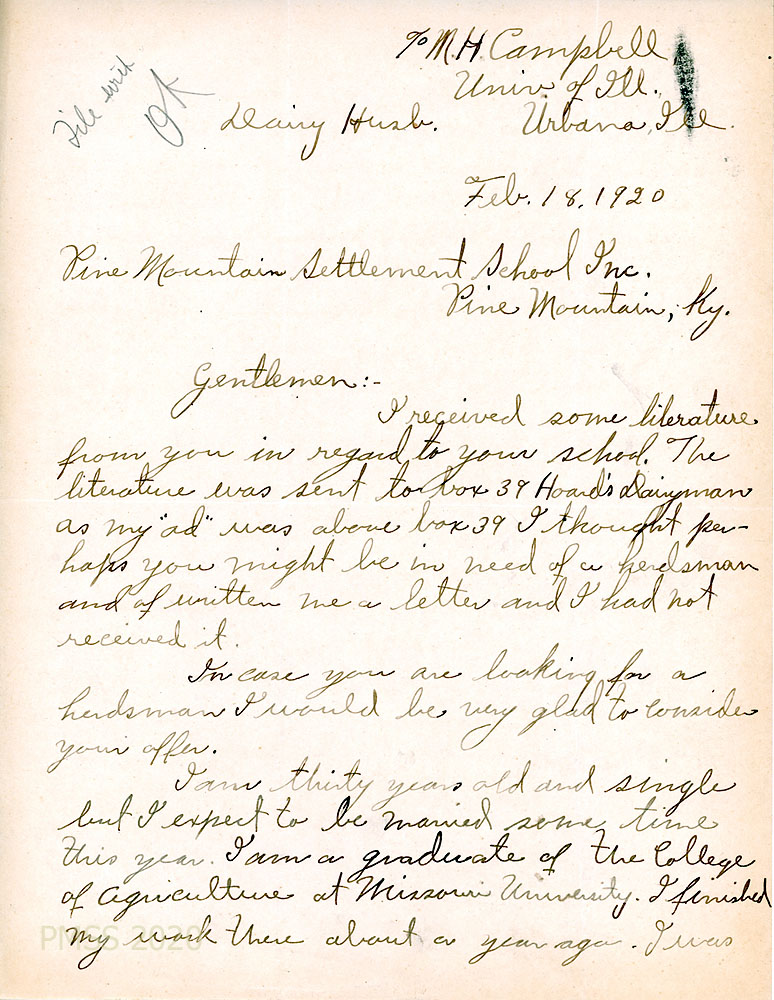 ℅ M.H. Campbell
Univ of Ill.
Dairy Husb. Urbana, Ill.
File with
OK
Feb. 18, 1920
Pine Mountain Settlement School Inc.
Pine Mountain, Ky.
Gentlemen:-
I received some literature
from you in regard to your school. The
literature was sent to box 39 Hoard's Dairyman
as my "ad" was above box 39 I thought per-
haps you might be in need of a herdsman
and of written me a letter and I had not
received it.
In case you are looking for a
herdsman I would be very glad to consider
your offer.
I am thirty years old and single
but I expect to be married some time
this year. I am a graduate of the College
of Agriculture at Missouri University. I finished
my work there about a year ago. I was
PMSS 2020